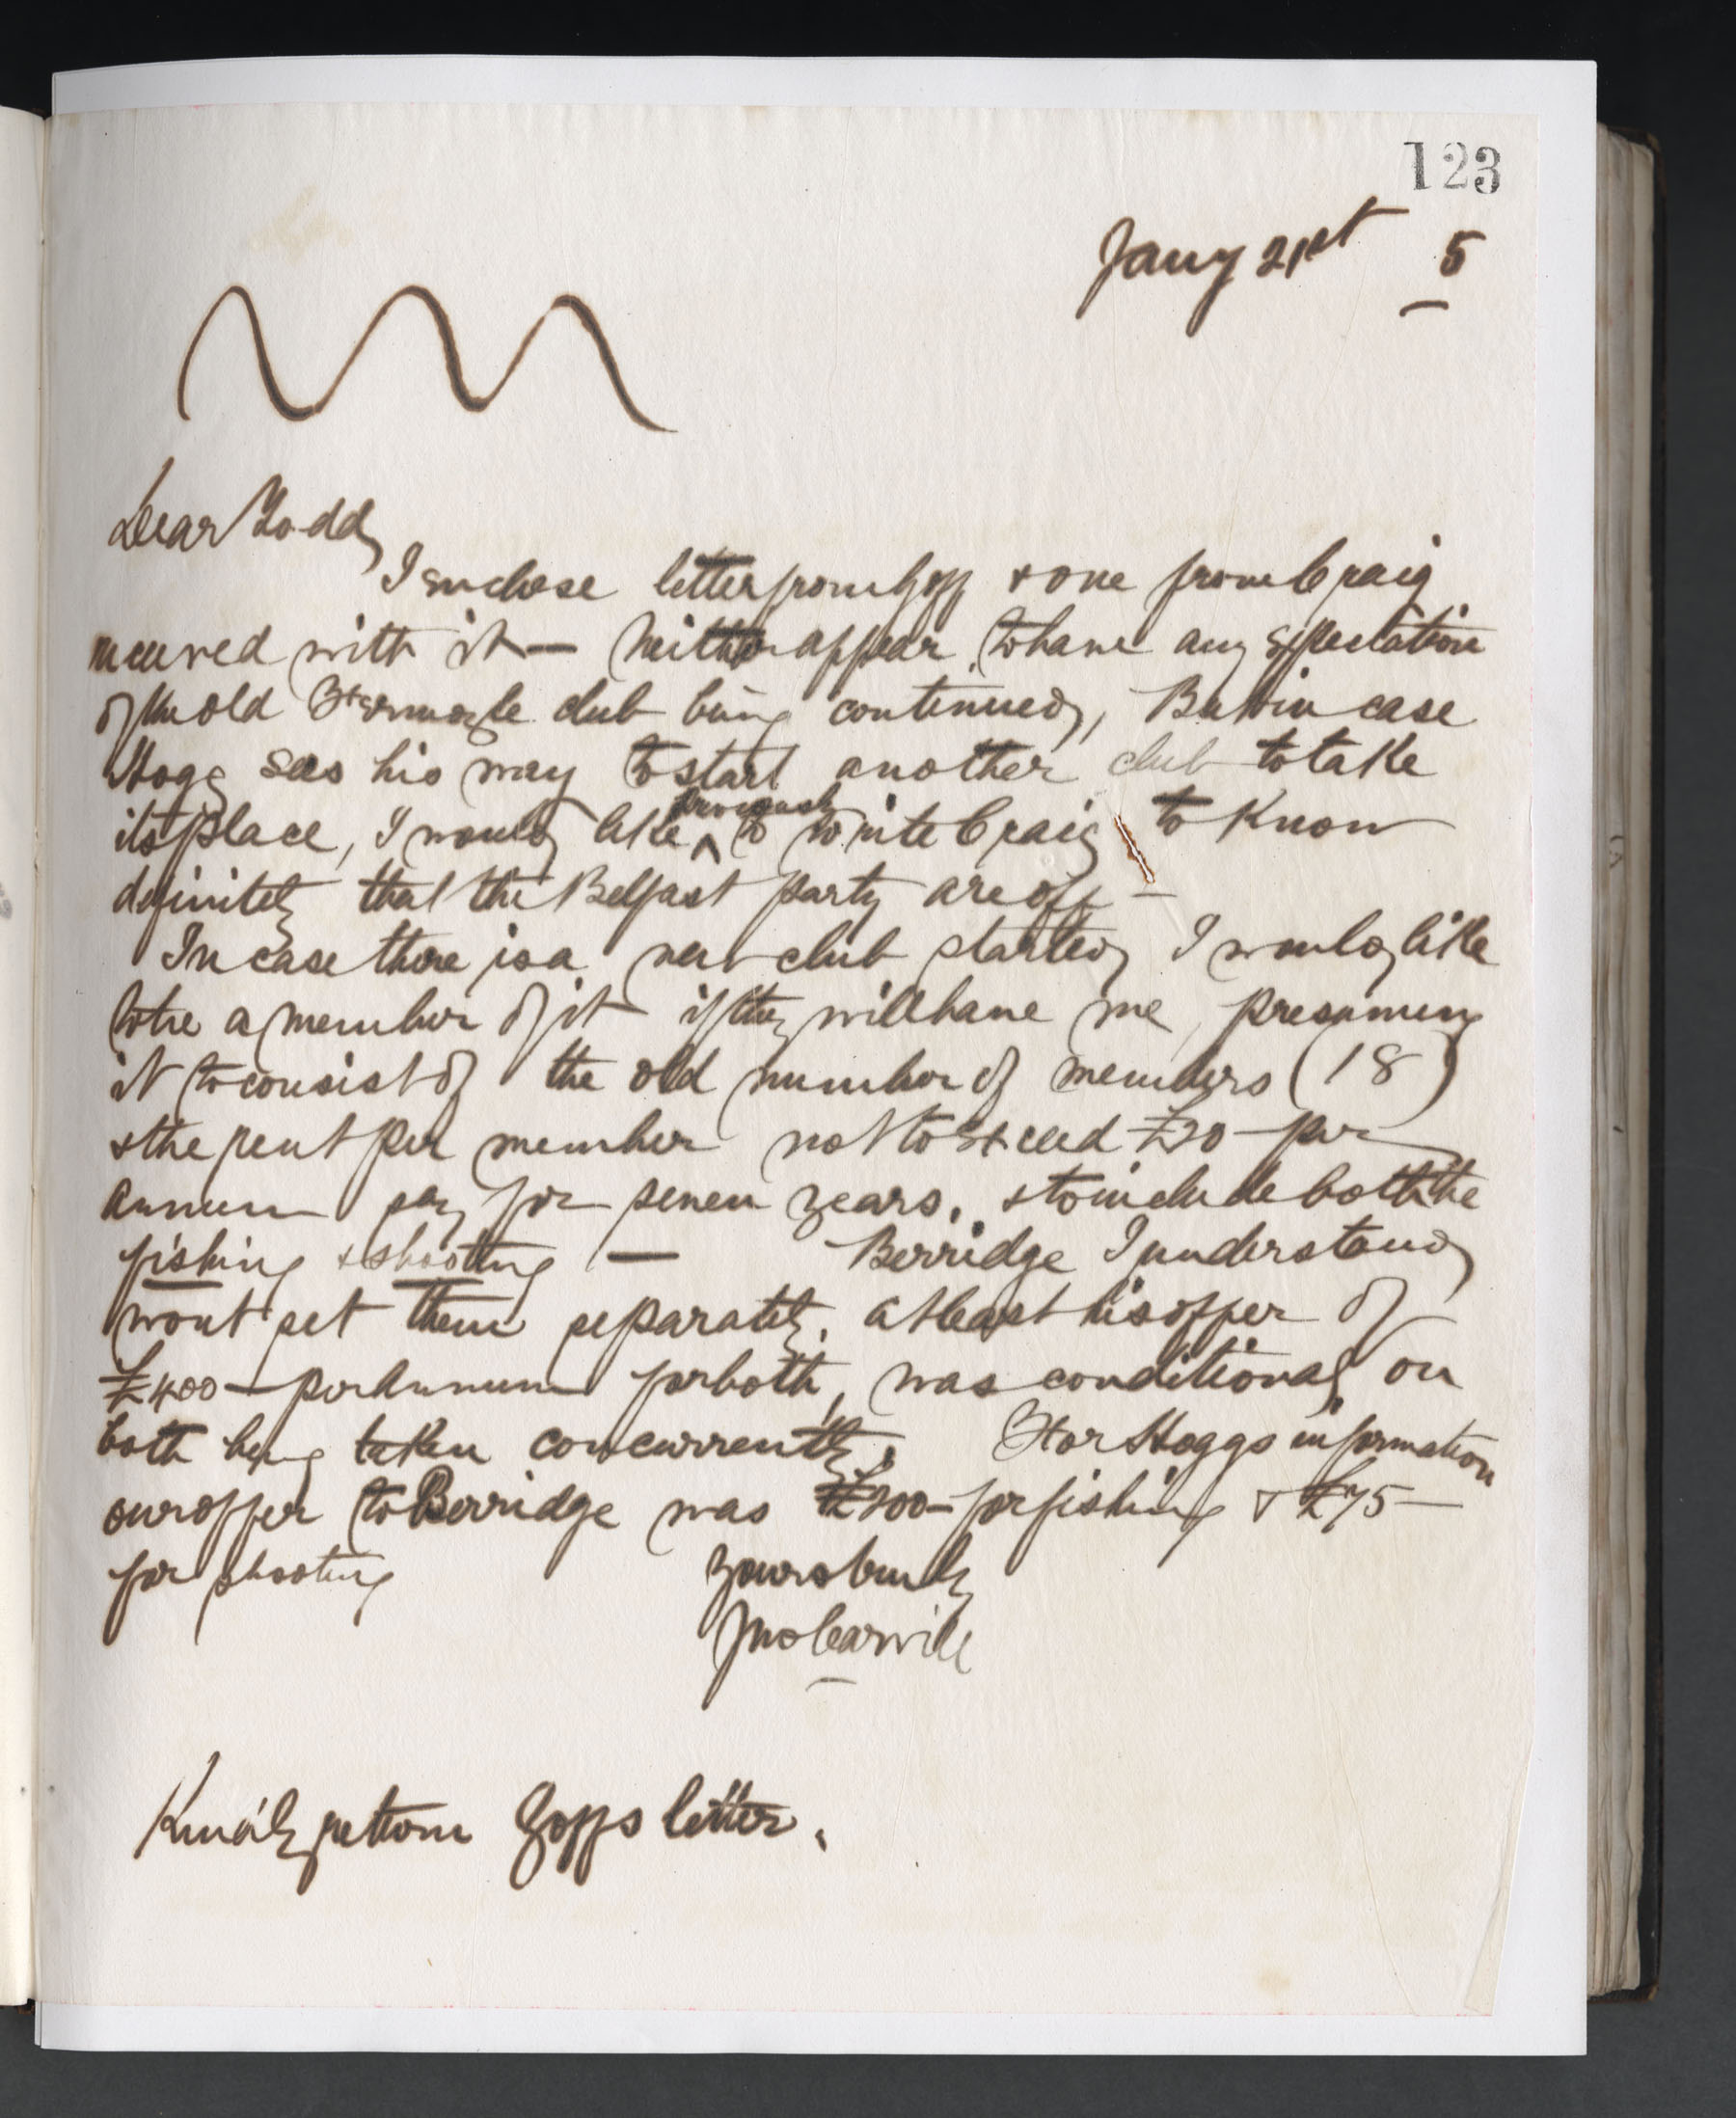 123
Jany 21st 5
Dear Todd,
I enclose letter from Goff & one from Craig
received with it — Neither appear to have any expectation
of the old Fermoyle club being continued, But in case
Hogg sees his way to start another club to take
its place, I would like previously to write Craig to know
definitely that the Belfast party are off —
In case there is a new club started I would like
to be a member of it if they will have me, presuming
it to consist of the old number of members (18)
& the rent per member not to exceed £20 - per
annum say for seven years, & to include both the
fishing & shooting — Berridge I understand
wont set them separately, at least his offer of
£400 — per annum for both, was conditional on
both being taken concurrently. For Hoggs information
our offer to Berridge was £200 - for fishing & £75 —
for shooting Yours truly
Jno Carvill
Kindly return Goffs letter.